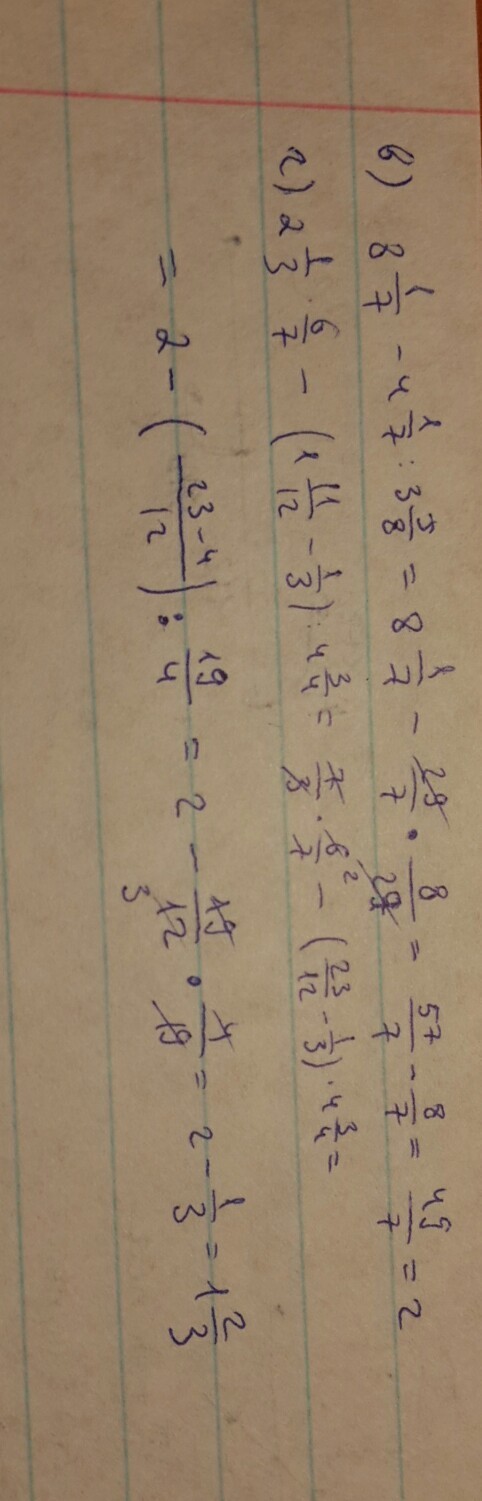 в) 8 1/7 - 4 1/7 : 3 5/8 = 8 1/7 - 29/7 · 8/29 = 57/7 - 8/7 = 49/7 = 2
г) 2 1/3 · 6/7 - (1 11/12 - 1/3) : 4 3/4 = 7/3 · 6/7 2 - (23/12 - 1/3) · 4 3/4 =
= 2 - (23-4/12) : 19/4 = 2 - 19/12 3 · 4/19 = 2 - 1/3 = 1 2/3